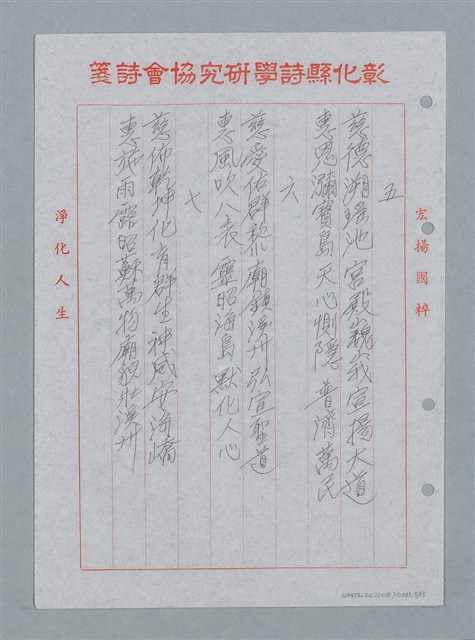 彰化縣詩學研究協會詩箋
宏揚國粹
五
慈德溯瑤池 宮殿巍峩宣揚大道
惠恩瀰寶島 天心惻隱 普濟萬民
六
慈愛佑群黎 廟鎮溪州弘宣聖道
惠風吹八表 靈昭海島 默化人心
七
慈佈乾坤化育群生神威安海嶠
惠施雨露昭蘇萬物廟貌壯溪州
淨化人生